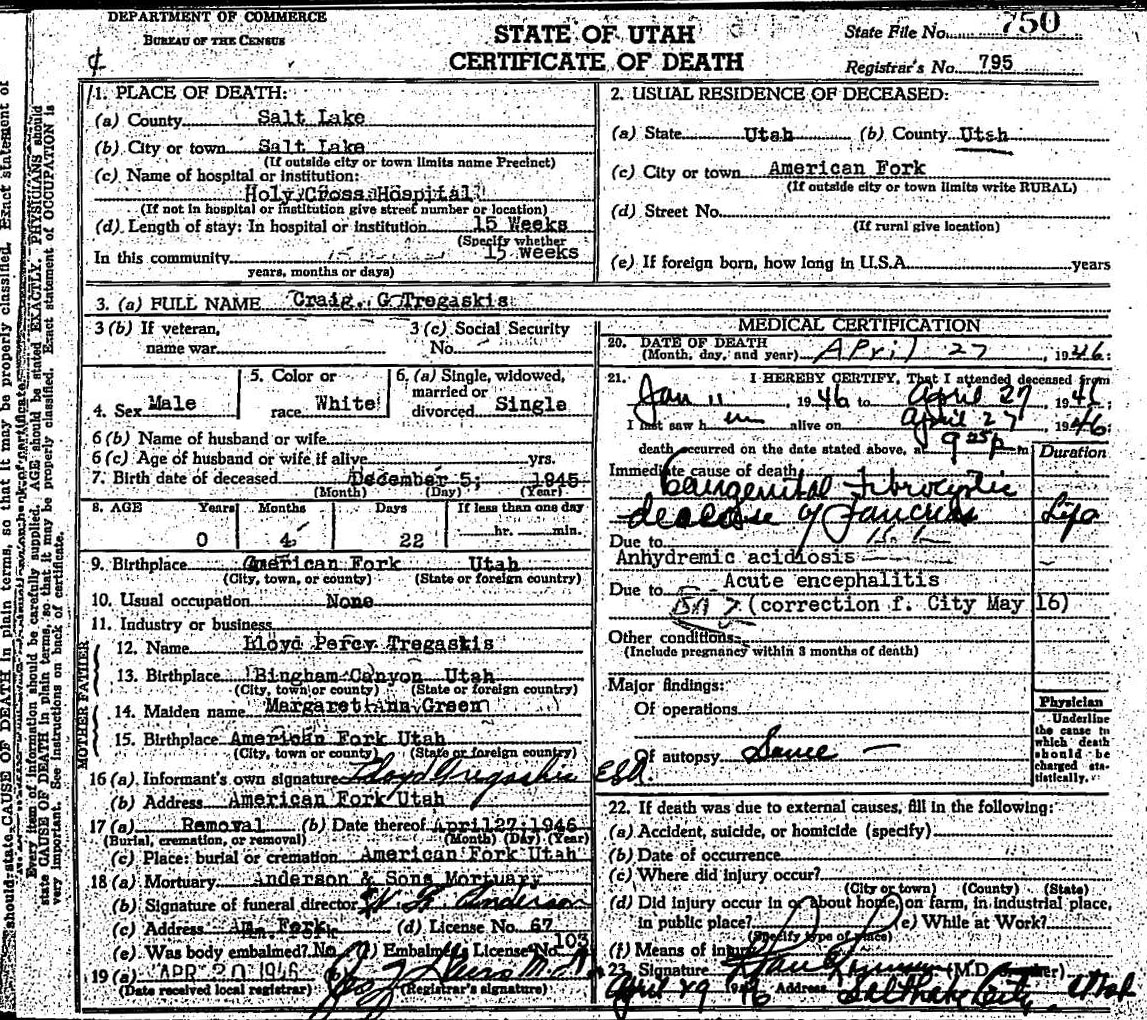 DEPARTMENT OF COMMERCE
BUREAU OF THE CENSUS
STATE OF UTAH
CERTIFICATE OF DEATH
State File No. 750
Registrar's No. 795
1. PLACE OF DEATH:
(a) County Salt Lake
(b) City or town Salt Lake
(If outside city or town limits name Precinct)
(c) Name of hospital or institution:
Holy Cross Hospital
(If not in hospital or institution give street number or location)
(d) Length of stay: In hospital or institution 15 Weeks
(Specify whether
In this community 15 weeks
years, months or days)
2. USUAL RESIDENCE OF DECEASED:
(a) State Utah (b) County Utah
(c) City or town American Fork
(If outside city or town limits write RURAL)
(d) Street No.
(If rural give location)
(e) If foreign born, how long in U.S.A. years
3. (a) FULL NAME Craig. G Tregaskis
3 (b) If veteran, name war
3 (c) Social Security No.
4. Sex Male
5. Color or race White
6. (a) Single, widowed, married or divorced Single
6 (b) Name of husband or wife
6 (c) Age of husband or wife if alive yrs.
7. Birth date of deceased December 5; 1945
(Month) (Day) (Year)
8. AGE Years Months Days If less than one day
0 4 22 hr. min.
9. Birthplace American Fork Utah
(City, town, or county) (State or foreign country)
10. Usual occupation None
11. Industry or business
FATHER
12. Name Lloyd Percy Tregaskis
13. Birthplace Bingham Canyon Utah
(City, town or county) (State or foreign country)
MOTHER
14. Maiden name Margaret Ann Green
15. Birthplace American Fork Utah
(City, town or county) (State or foreign country)
16 (a). Informant's own signature Lloyd Tregaskis
(b) Address American Fork Utah
17 (a) Removal (b) Date thereof April 27; 1946
(Burial, cremation, or removal) (Month) (Day) (Year)
(c) Place: burial or cremation American Fork Utah
18 (a) Mortuary Anderson & Sons Mortuary
(b) Signature of funeral director Anderson
(c) Address Am. Fork (d) License No. 67
(e) Was body embalmed? No (f) Embalmer's License No. 103
19 (a) APR 30 1946
(Date received local registrar) (Registrar's signature)
MEDICAL CERTIFICATION
20. DATE OF DEATH
(Month, day, and year) April 27, 1946
21. I HEREBY CERTIFY, That I attended deceased from
Jan 11, 1946 to April 27, 1946
I last saw h im alive on April 27, 1946
death occurred on the date stated above, at 9 25 p m
Duration
Immediate cause of death Congenital Fibrocystic
disease of Pancreas Life
Due to
Anhydremic acidiosis
Acute encephalitis
Due to
(correction f. City May 16)
Other conditions
(Include pregnancy within 3 months of death)
Major findings:
Of operations
Of autopsy Same
Physician
Underline the cause to which death should be charged statistically.
22. If death was due to external causes, fill in the following:
(a) Accident, suicide, or homicide (specify)
(b) Date of occurrence
(c) Where did injury occur?
(City or town) (County) (State)
(d) Did injury occur in or about home, on farm, in industrial place,
in public place? (e) While at Work?
(Specify type of place)
(f) Means of injury
23. Signature (M.D. or other)
April 29 46 Address Salt Lake City Utah
should state CAUSE OF DEATH in plain terms, so that it may be properly classified. Exact statement of
Every item of information should be carefully supplied. AGE should be stated EXACTLY. PHYSICIANS should
state CAUSE OF DEATH in plain terms, so that it may be properly classified. Exact statement of OCCUPATION is
very important. See instructions on back of certificate.